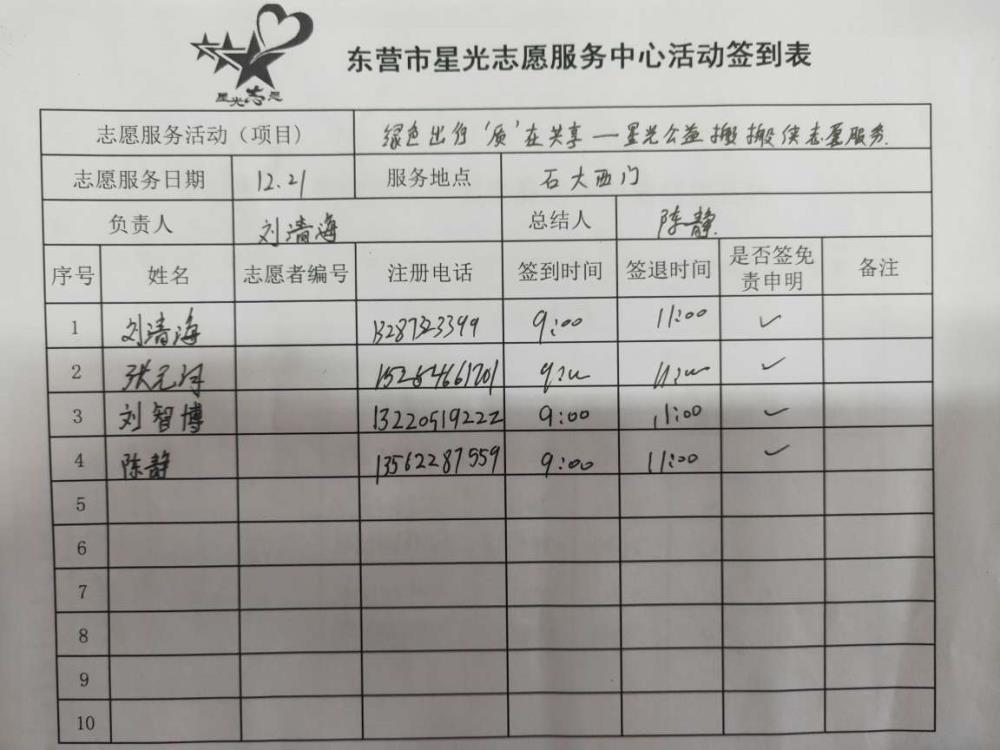 星光志愿
东营市星光志愿服务中心活动签到表
志愿服务活动（项目） 绿色出行‘质’在共享—星光公益搬搬侠志愿服务.
志愿服务日期 12.21 服务地点 石大西门
负责人 刘清海 总结人 陈静
序号 姓名 志愿者编号 注册电话 签到时间 签退时间 是否签免责申明 备注
1 刘清海 9:00 11:00 ✓
2 ✓
3 刘智博 13220519222 9:00 11:00 ✓
4 陈静 13562287559 9:00 11:00 ✓
5
6
7
8
9
10